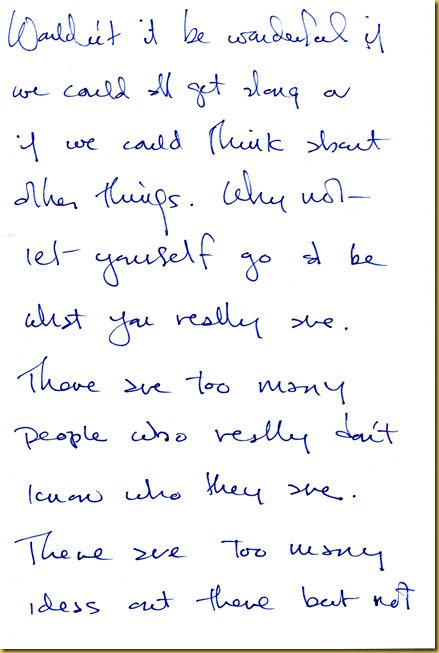 Wouldn't it be wonderful if
we could all get along or
if we could think about
other things. Why not
let yourself go & be
what you really are.
There are too many
people who really don't
know who they are.
There are too many
ideas out there but not